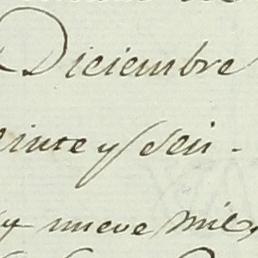 Diciembre
einte y Seis -
y nueve mil